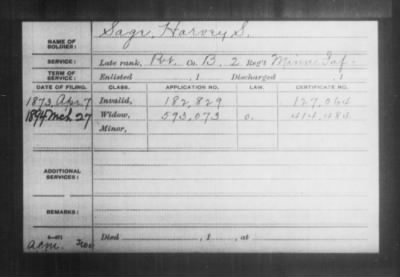 NAME OF SOLDIER: Sage, Harvey S.
SERVICE: Late rank, Pvt. Co. B, 2 Reg't Minn Inf.
TERM OF SERVICE: Enlisted , 1 Discharged , 1
DATE OF FILING. CLASS. APPLICATION NO. LAW. CERTIFICATE NO.
1873, Apr. 7 Invalid, 182,829 127,064
1894 Mch 27 Widow, 593,073 o. 414,484
Minor,
ADDITIONAL SERVICES:
REMARKS:
Died , 1 , at